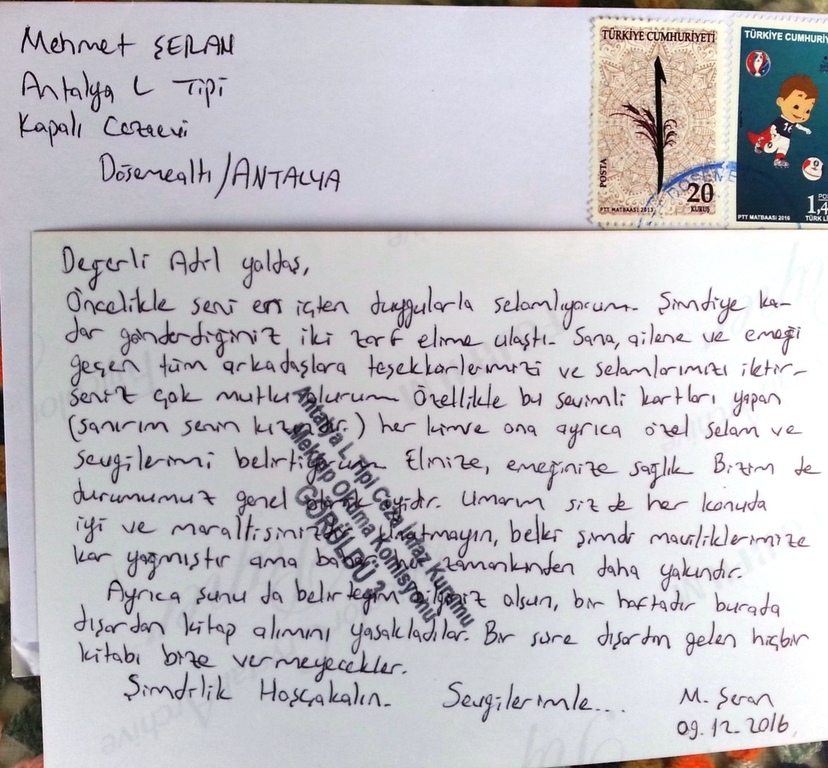 Mehmet ŞERAN
Antalya L Tipi
Kapalı Cezaevi
Döşemealtı/ANTALYA
TÜRKİYE CUMHURİYETİ
POSTA
20
KURUŞ
PTT MATBAASI 2013
TÜRKİYE CUMHURİY
1,4
TÜRK L
PTT MATBAASI 2016
Değerli Adil yoldaş,
Öncelikle seni en içten duygularla selamlıyorum. Şimdiye ka-
dar gönderdiğiniz iki zarf elime ulaştı. Sana, ailene ve emeği
geçen tüm arkadaşlara teşekkürlerimizi ve selamlarımızı iletir-
seniz çok mutlu olurum. Özellikle bu sevimli kartları yapan
(sanırım senin kızındır.) her kimse ona ayrıca özel selam ve
sevgilerimi belirtiyorum. Elinize, emeğinize sağlık. Bizim de
durumumuz genel olarak iyidir. Umarım siz de her konuda
iyi ve moraltisiniz. kırılmayın, belki şimdi maviliklerimize
kar yağmıştır ama bahar her zamankinden daha yakındır.
Ayrıca şunu da belirteyim bilginiz olsun, bir haftadır burada
dışardan kitap alımını yasakladılar. Bir süre dışardan gelen hiçbir
kitabı bize vermeyecekler.
Şimdilik Hoşçakalın. Sevgilerimle...
M. Şeran
09.12.2016
Antalya L Tipi Ceza İnfaz Kurumu
Mektup Okuma Komisyonu
GÖRÜLDÜ 2